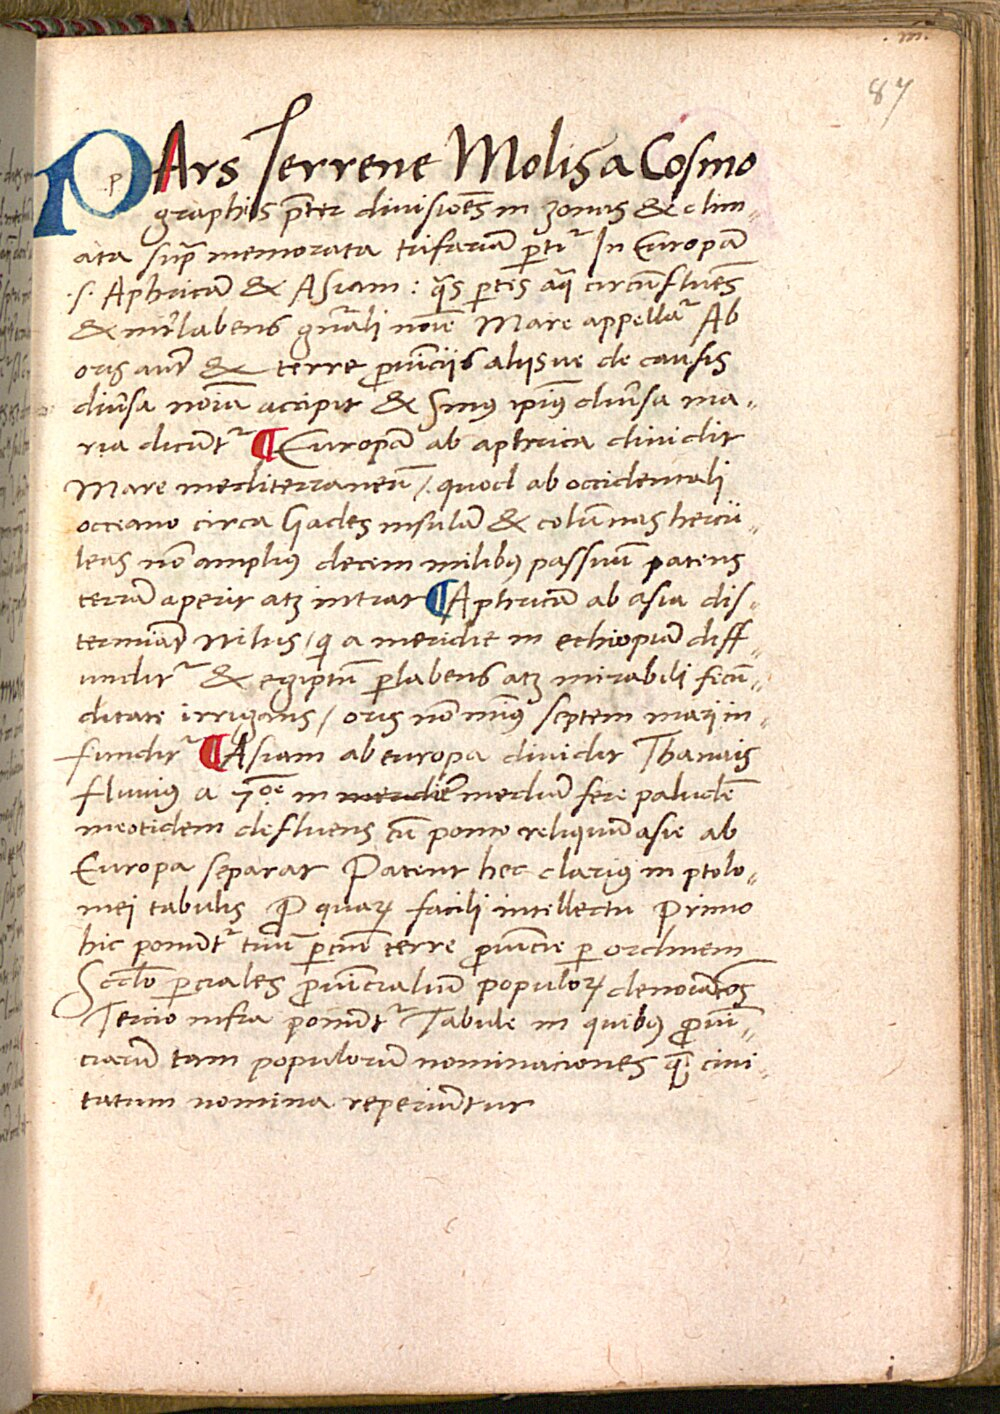 .m.
87
PArs Terrene Molis a Cosmo
graphis p̄ter diuisiōēs in zonas & clim„
ata sup̄ memorata trifariā ꝑtit᷑ In Europā
.s. Aphricā & Asiam : quās ꝑtes aq̄ circūfluēs
& int̄labens gn̄ali noīe Mare appellat᷑ Ab
oris aut̄ & terre ꝓuīciis aliisue de causis
diūsa noīa accipit & Sinꝰ ipīꝰ diūsa ma„
ria dicūt᷑ ¶ Europā ab aphrica diuidit
Mare mediterraneū /. quod ab occidentali
occeano circa Gades insulā & colūnas hercu„
leas nō ampliꝰ decem milibꝰ passuū patens
terrā aperit atqꝫ intrat ¶ Aphricā ab asia dis„
termīat Nilus / qi a meridie in ethiopiā diff„
undit᷑ & egiptū ꝑlabens atqꝫ mirabili fecū„
ditate irrigans / oris nō minꝰ septem mari in„
fundit᷑ ¶ Asiam ab europa diuidit Thanais
fluuiꝰ a 7oē in meridiē mediā fere paludē
meotidem defluens cū ponto reliquū asie ab
Europa separat Patent hec clariꝰ in ptolo„
mei tabulis P quaꝝ facili intellectu Primo
hic ponūt᷑ triū ꝑciū terre ꝓuīcie ꝑ ordinem
Scd̄o ꝑciales ꝓuīcialiū populoꝝ denoīatōs
Tercio infra ponūt᷑ Tabule in quibꝰ ꝓuī„
ciarū tam populorū nominaciones qꝫ ciui„
tatum nomina reperiūtur